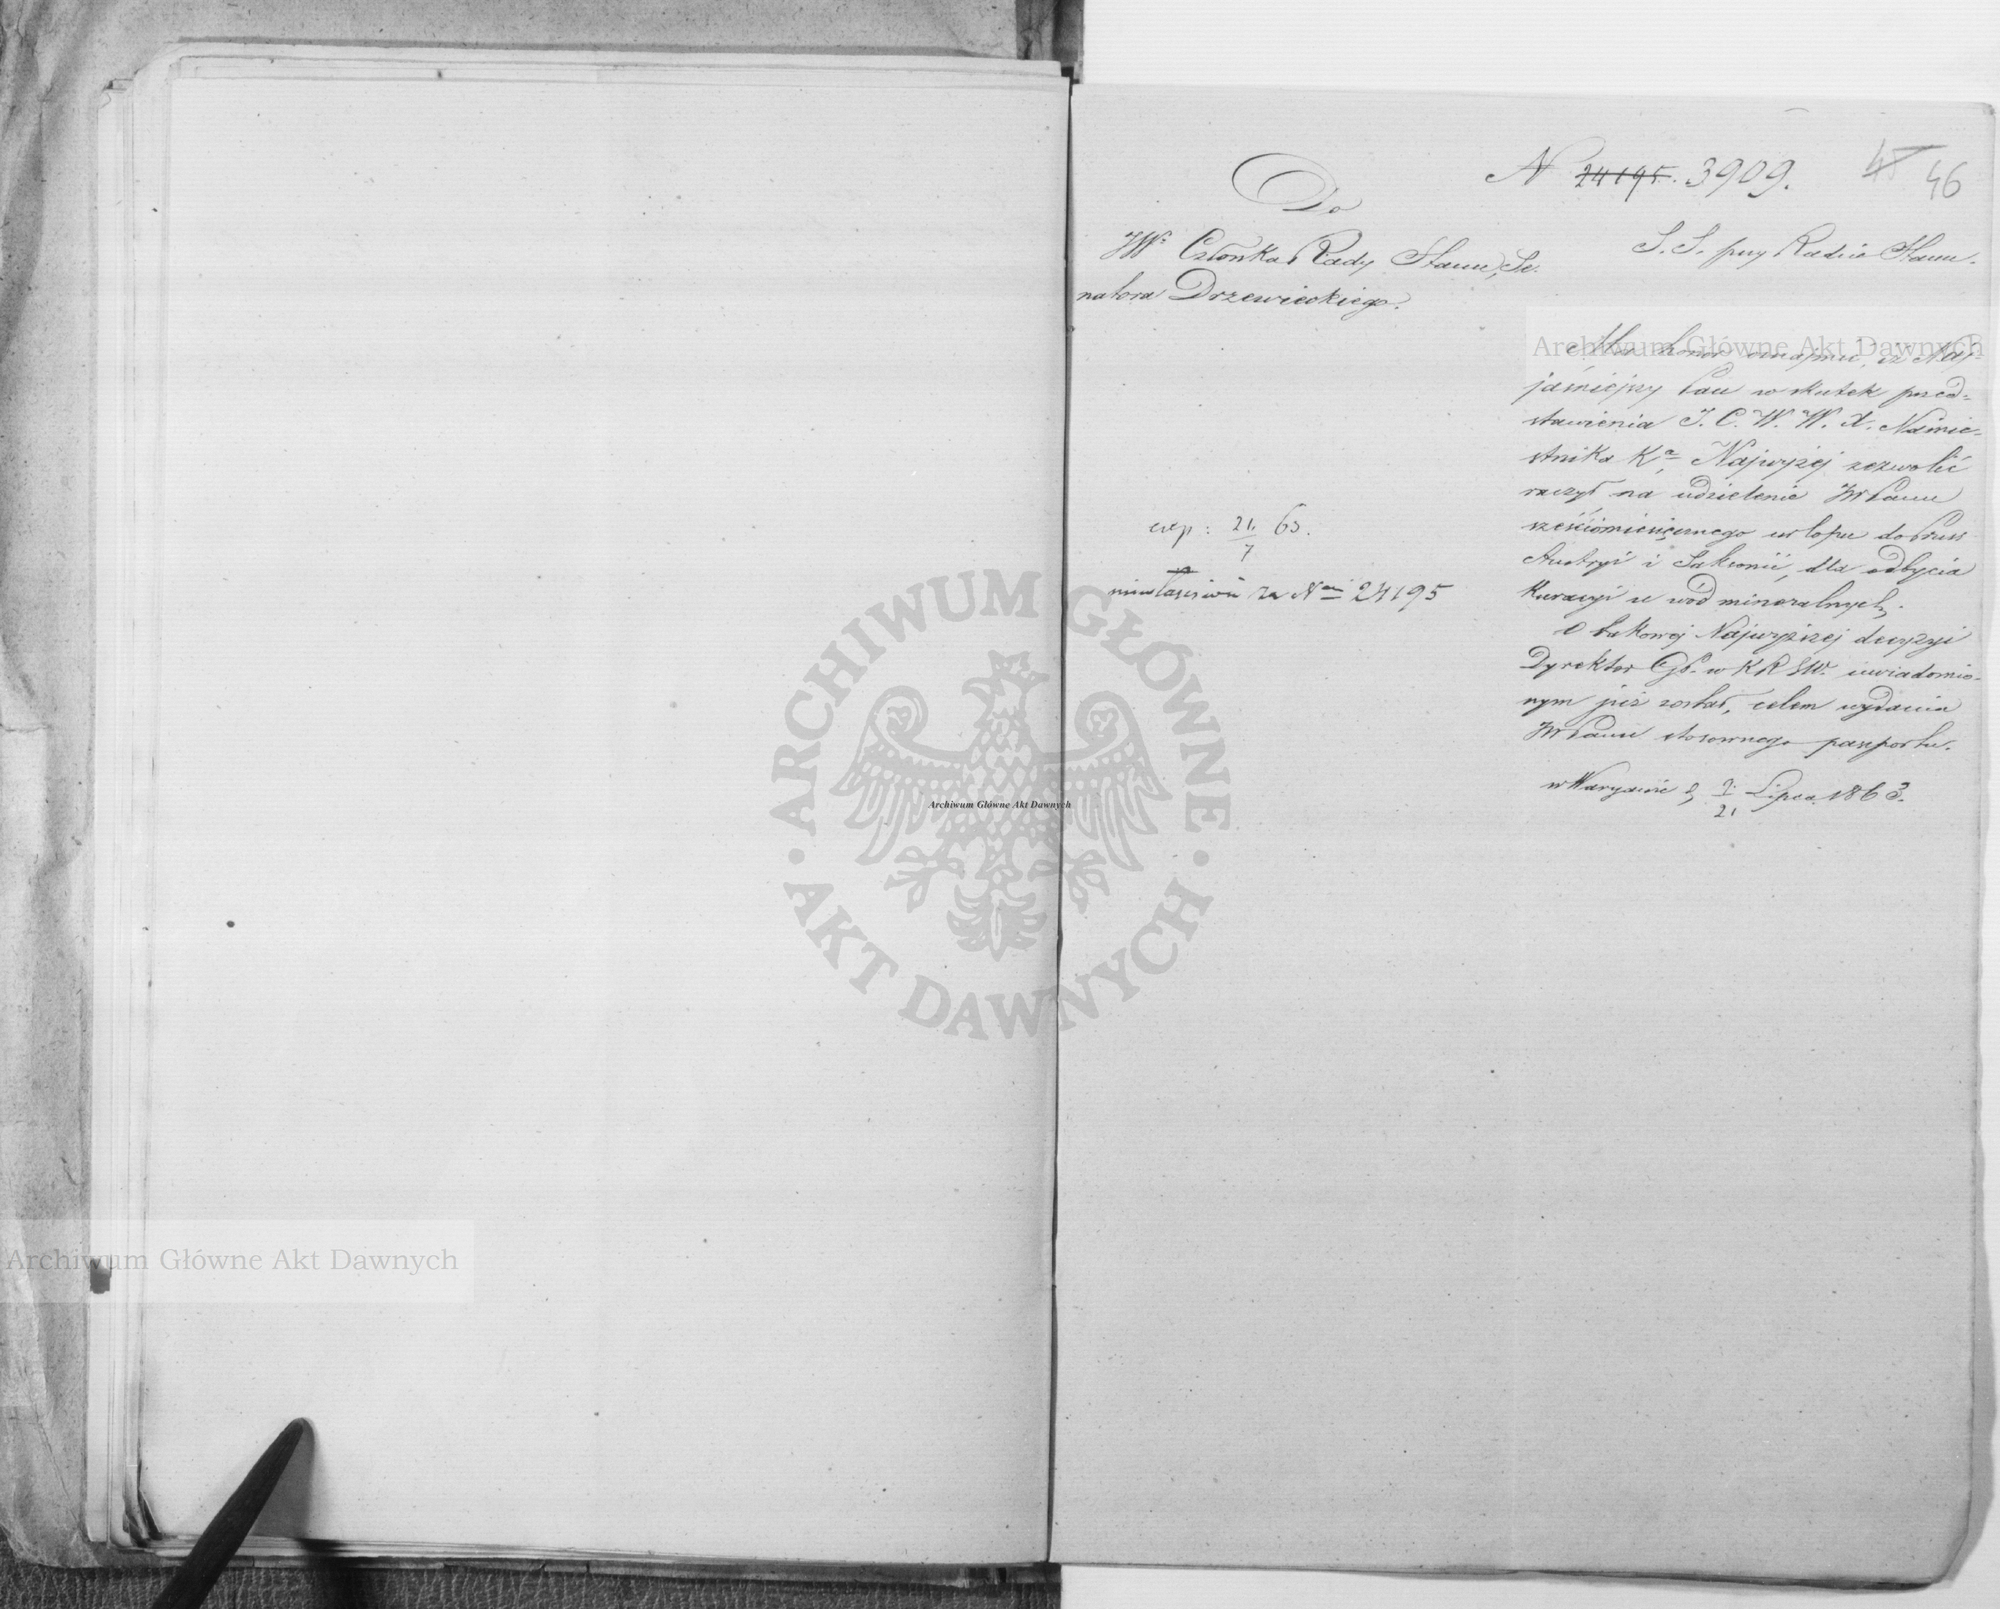 N 24195. 3909.
45 46
Do
JW. Członka Rady Stanu, Se-
natora Drzewieckiego.
S. S. przy Radzie Stanu.
Mam honor oznajmić, iż Naj-
jaśniejszy Pan w skutek przed-
stawienia J. C. W. W. X. Namie-
stnika Kr. Najwyżej zezwolić
raczył na udzielenie JW Panu
sześciomiesięcznego urlopu do Pruss
Austryi i Saksonii, dla odbycia
Kuracyi u wód mineralnych.
O takowej Najwyższej decyzyi
Dyrektor Gł. w K R S W. uwiadomio-
nym już został, celem wydania
JW Panu stosownego paszportu.
w Warszawie d. 9/21 Lipca 1863.
exp: 21/7 63.
za Nem 24195
Archiwum Główne Akt Dawnych
Archiwum Główne Akt Dawnych
Archiwum Główne Akt Dawnych
ARCHIWUM GŁÓWNE · AKT DAWNYCH ·